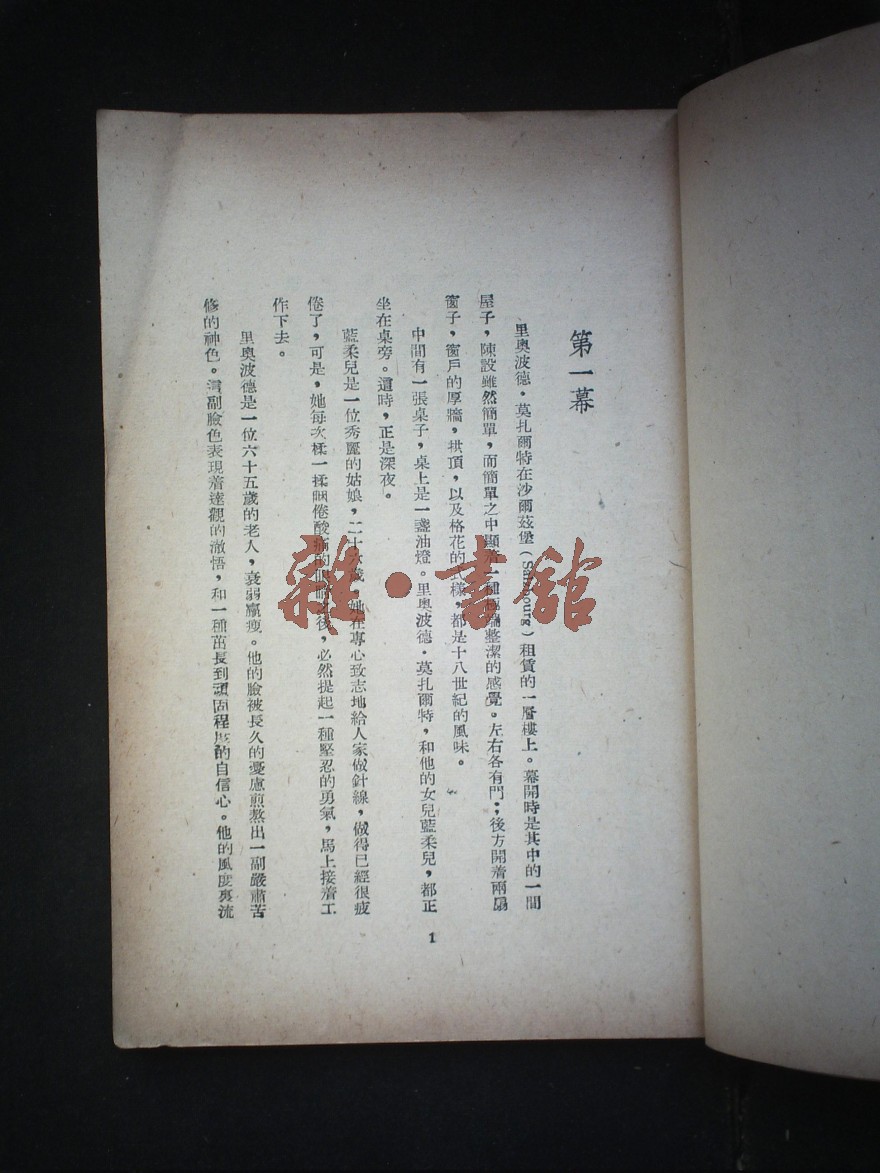 第一幕
里奧波德·莫扎爾特在沙爾茲堡(Salzbourg)租賃的一層樓上。幕開時是其中的一間
屋子，陳設雖然簡單，而簡單之中顯着一種極端整潔的感覺。左右各有門；後方開着兩扇
窗子，窗戶的厚牆，拱頂，以及格花的式樣，都是十八世紀的風味。
中間有一張桌子，桌上是一盞油燈。里奧波德·莫扎爾特，和他的女兒藍柔兒，都正
坐在桌旁。這時，正是深夜。
藍柔兒是一位秀麗的姑娘，二十六歲，她在專心致志地給人家做針線，做得已經很疲
倦了，可是，她每次揉一揉睏倦酸痛的眼睛之後，必然提起一種堅忍的勇氣，馬上接着工
作下去。
里奧波德是一位六十五歲的老人，衰弱羸瘦。他的臉被長久的憂慮煎熬出一副嚴肅苦
修的神色。這副臉色表現着達觀的澈悟，和一種茁長到頑固程度的自信心。他的風度裏流
1
雜·書館